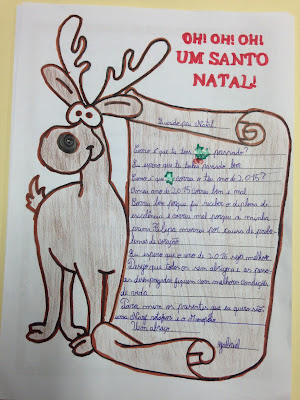 OH! OH! OH!
UM SANTO
NATAL!
Querido pai Natal
Como é que tu tens passado?
Eu espero que tu tenhas passado bem.
Como é que correu o teu ano de 2015?
O meu ano de 2015 correu bem e mal.
Correu bem porque fui receber o diploma de
excelência e correu mal porque a minha
prima morreu por causa de proble-
mas de coração.
Eu espero que o ano de 2016 seja melhor.
Desejo que todos os sem abrigo e as pesso-
as desempregadas fiquem com melhores condições
de vida.
Para mim os presentes que eu quero são:
uma Nerf, e o Monopólio.
Um abraço
Gabriel